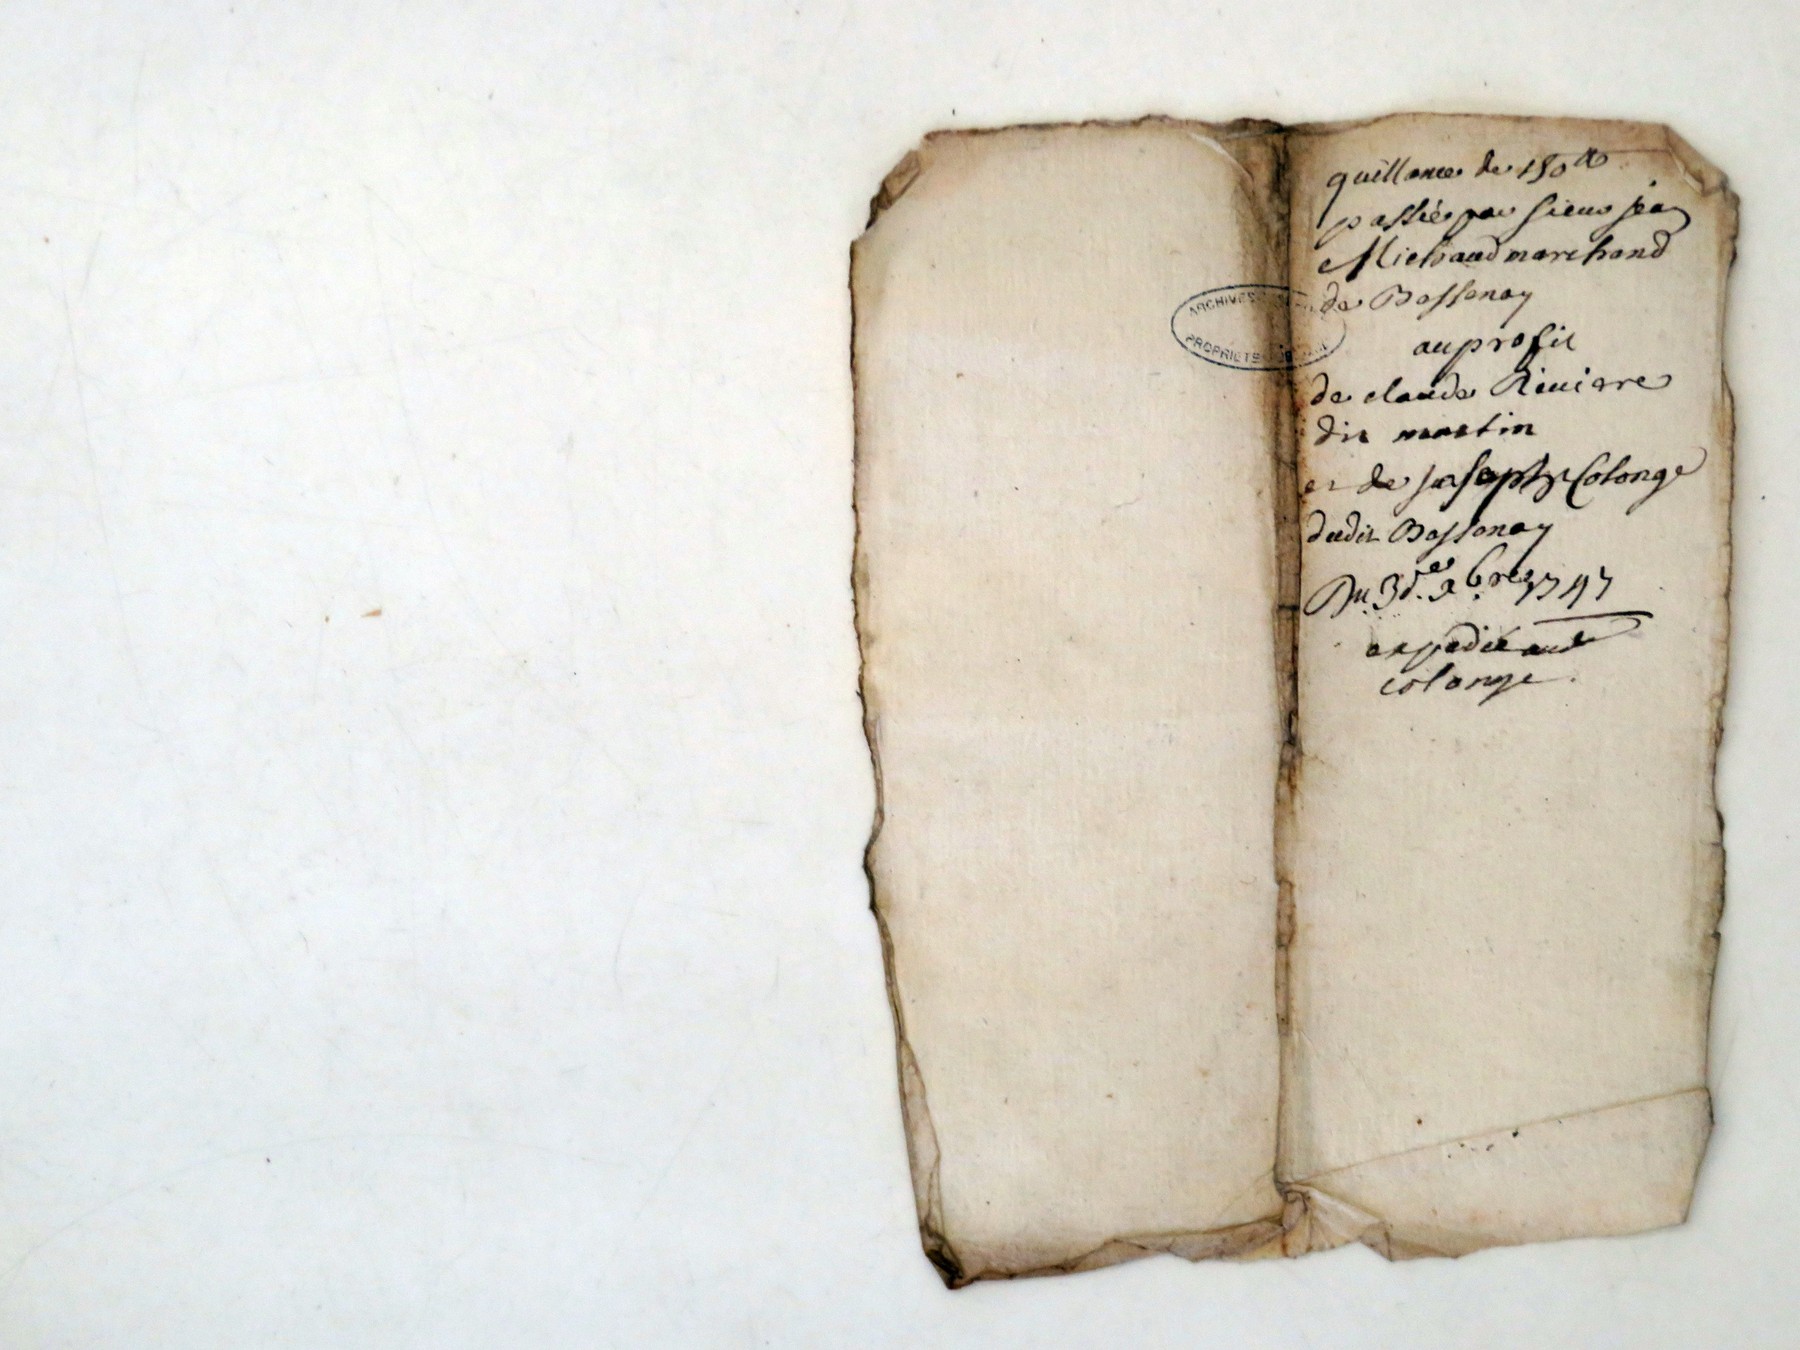 quittance de 150lt
passée par sieur jean
Michaud marchand
de Bessenay
au profit
de claude Riviere
dit martin
et de joseph Colonge
dudit Bessenay
Du 3d. xbre 1747
expedié aud
colonge.
ARCHIVES
PROPRIETE PUBLIQUE